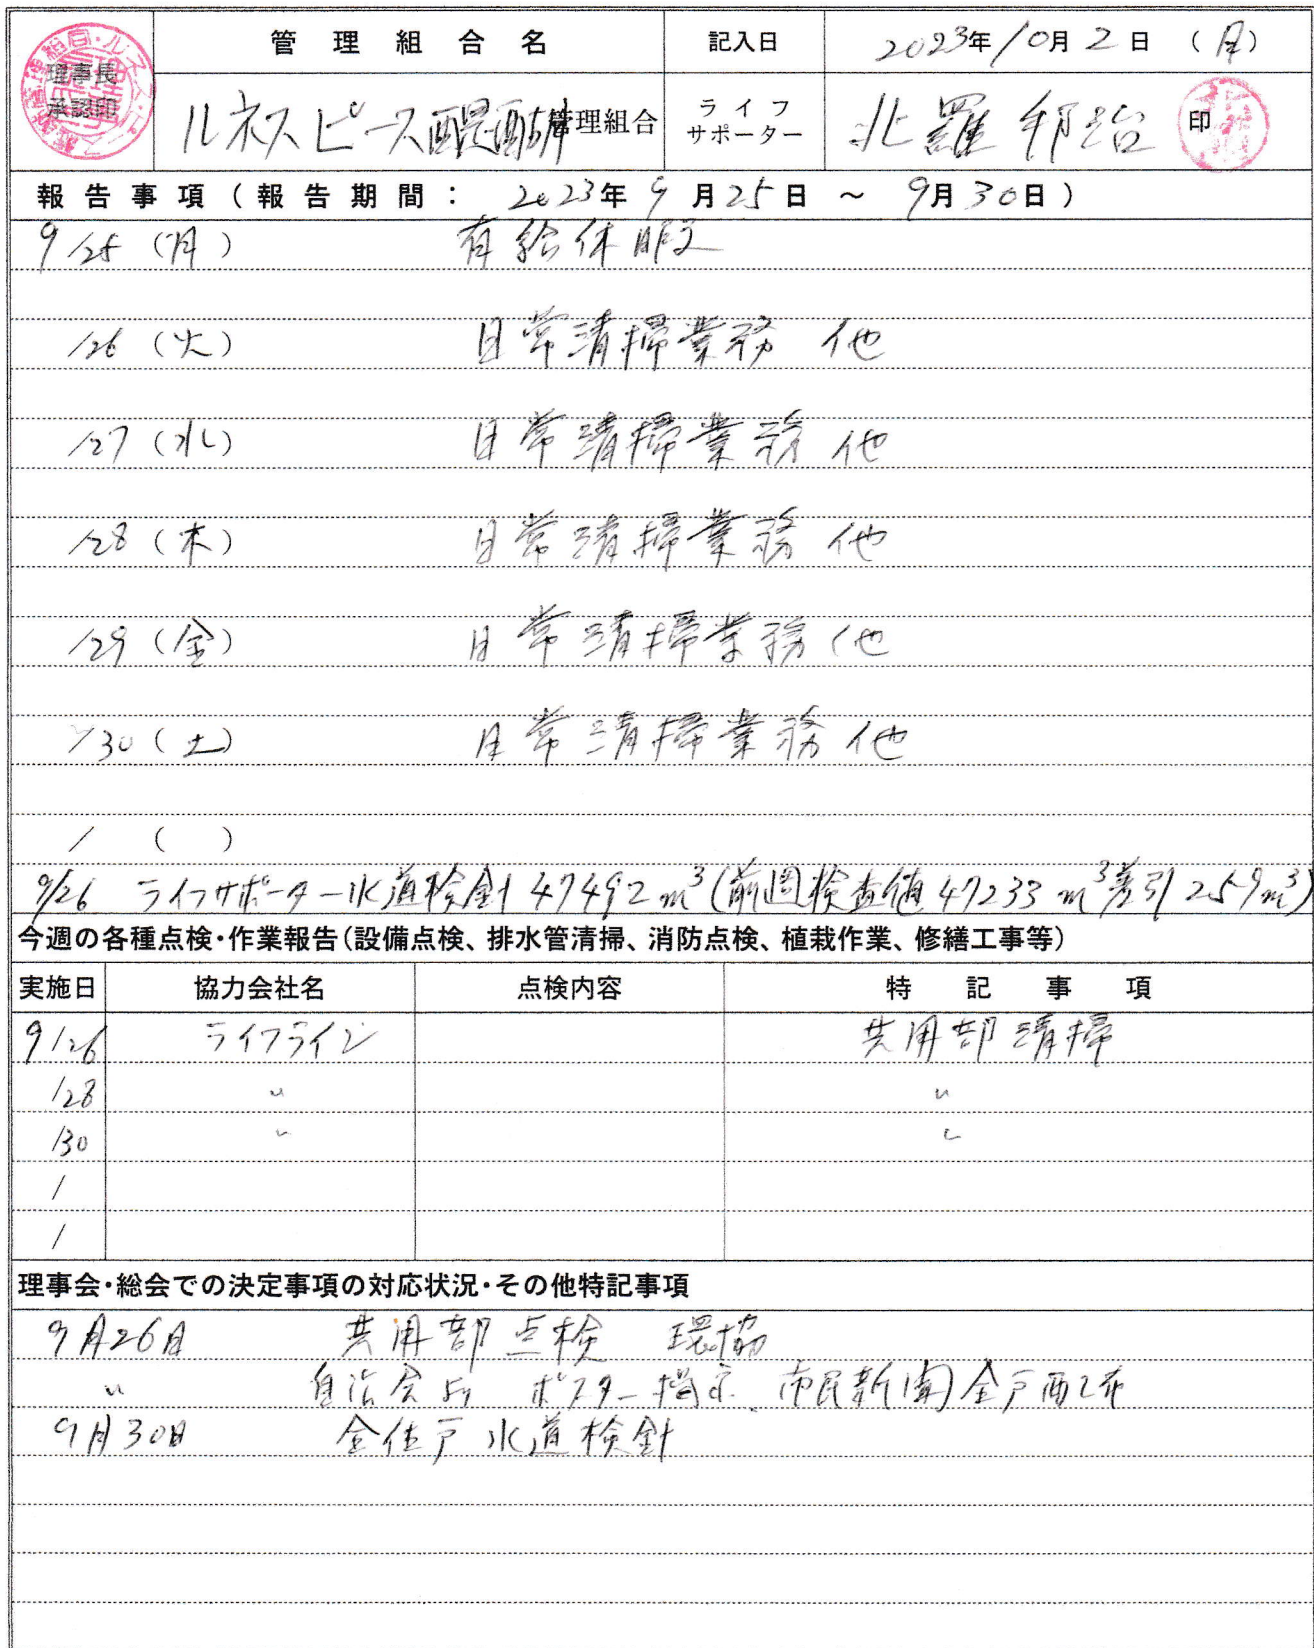 管理組合名 記入日 2023年10月2日（月）
理事長
承認印
ルネスピース醍醐管理組合 ライフサポーター 北羅 邦治 印
報告事項（報告期間： 2023年9月25日 ～ 9月30日）
9/25（月） 有給休暇
/26（火） 日常清掃業務 他
/27（水） 日常清掃業務 他
/28（木） 日常清掃業務 他
/29（金） 日常清掃業務 他
/30（土） 日常清掃業務 他
/ （ ）
9/26 ライフサポーター水道検針 47492m³(前週検査値 47233m³差引259m³)
今週の各種点検・作業報告(設備点検、排水管清掃、消防点検、植栽作業、修繕工事等)
実施日 協力会社名 点検内容 特記事項
9/26 ライフライン 共用部清掃
/28 〃 〃
/30 〃 〃
/
/
理事会・総会での決定事項の対応状況・その他特記事項
9月26日 共用部点検 環協
〃 自治会より ポスター掲示、市民新聞全戸配布
9月30日 全住戸水道検針